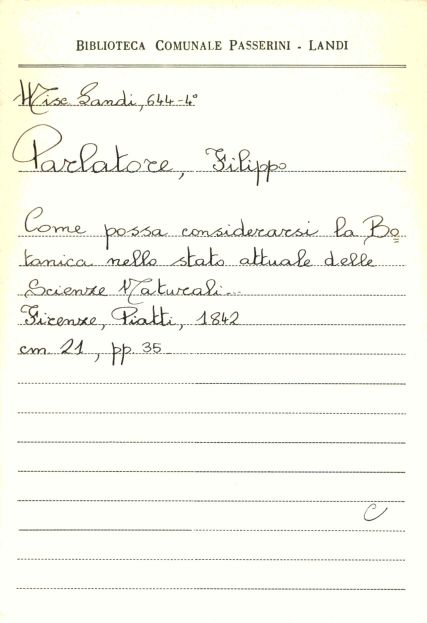 BIBLIOTECA COMUNALE PASSERINI - LANDI
Misc. Landi, 644-4°
Parlatore, Filippo
Come possa considerarsi la Bo=
tanica nello stato attuale delle
Scienze Naturali...
Firenze, Piatti, 1842
cm. 21, pp. 35
C